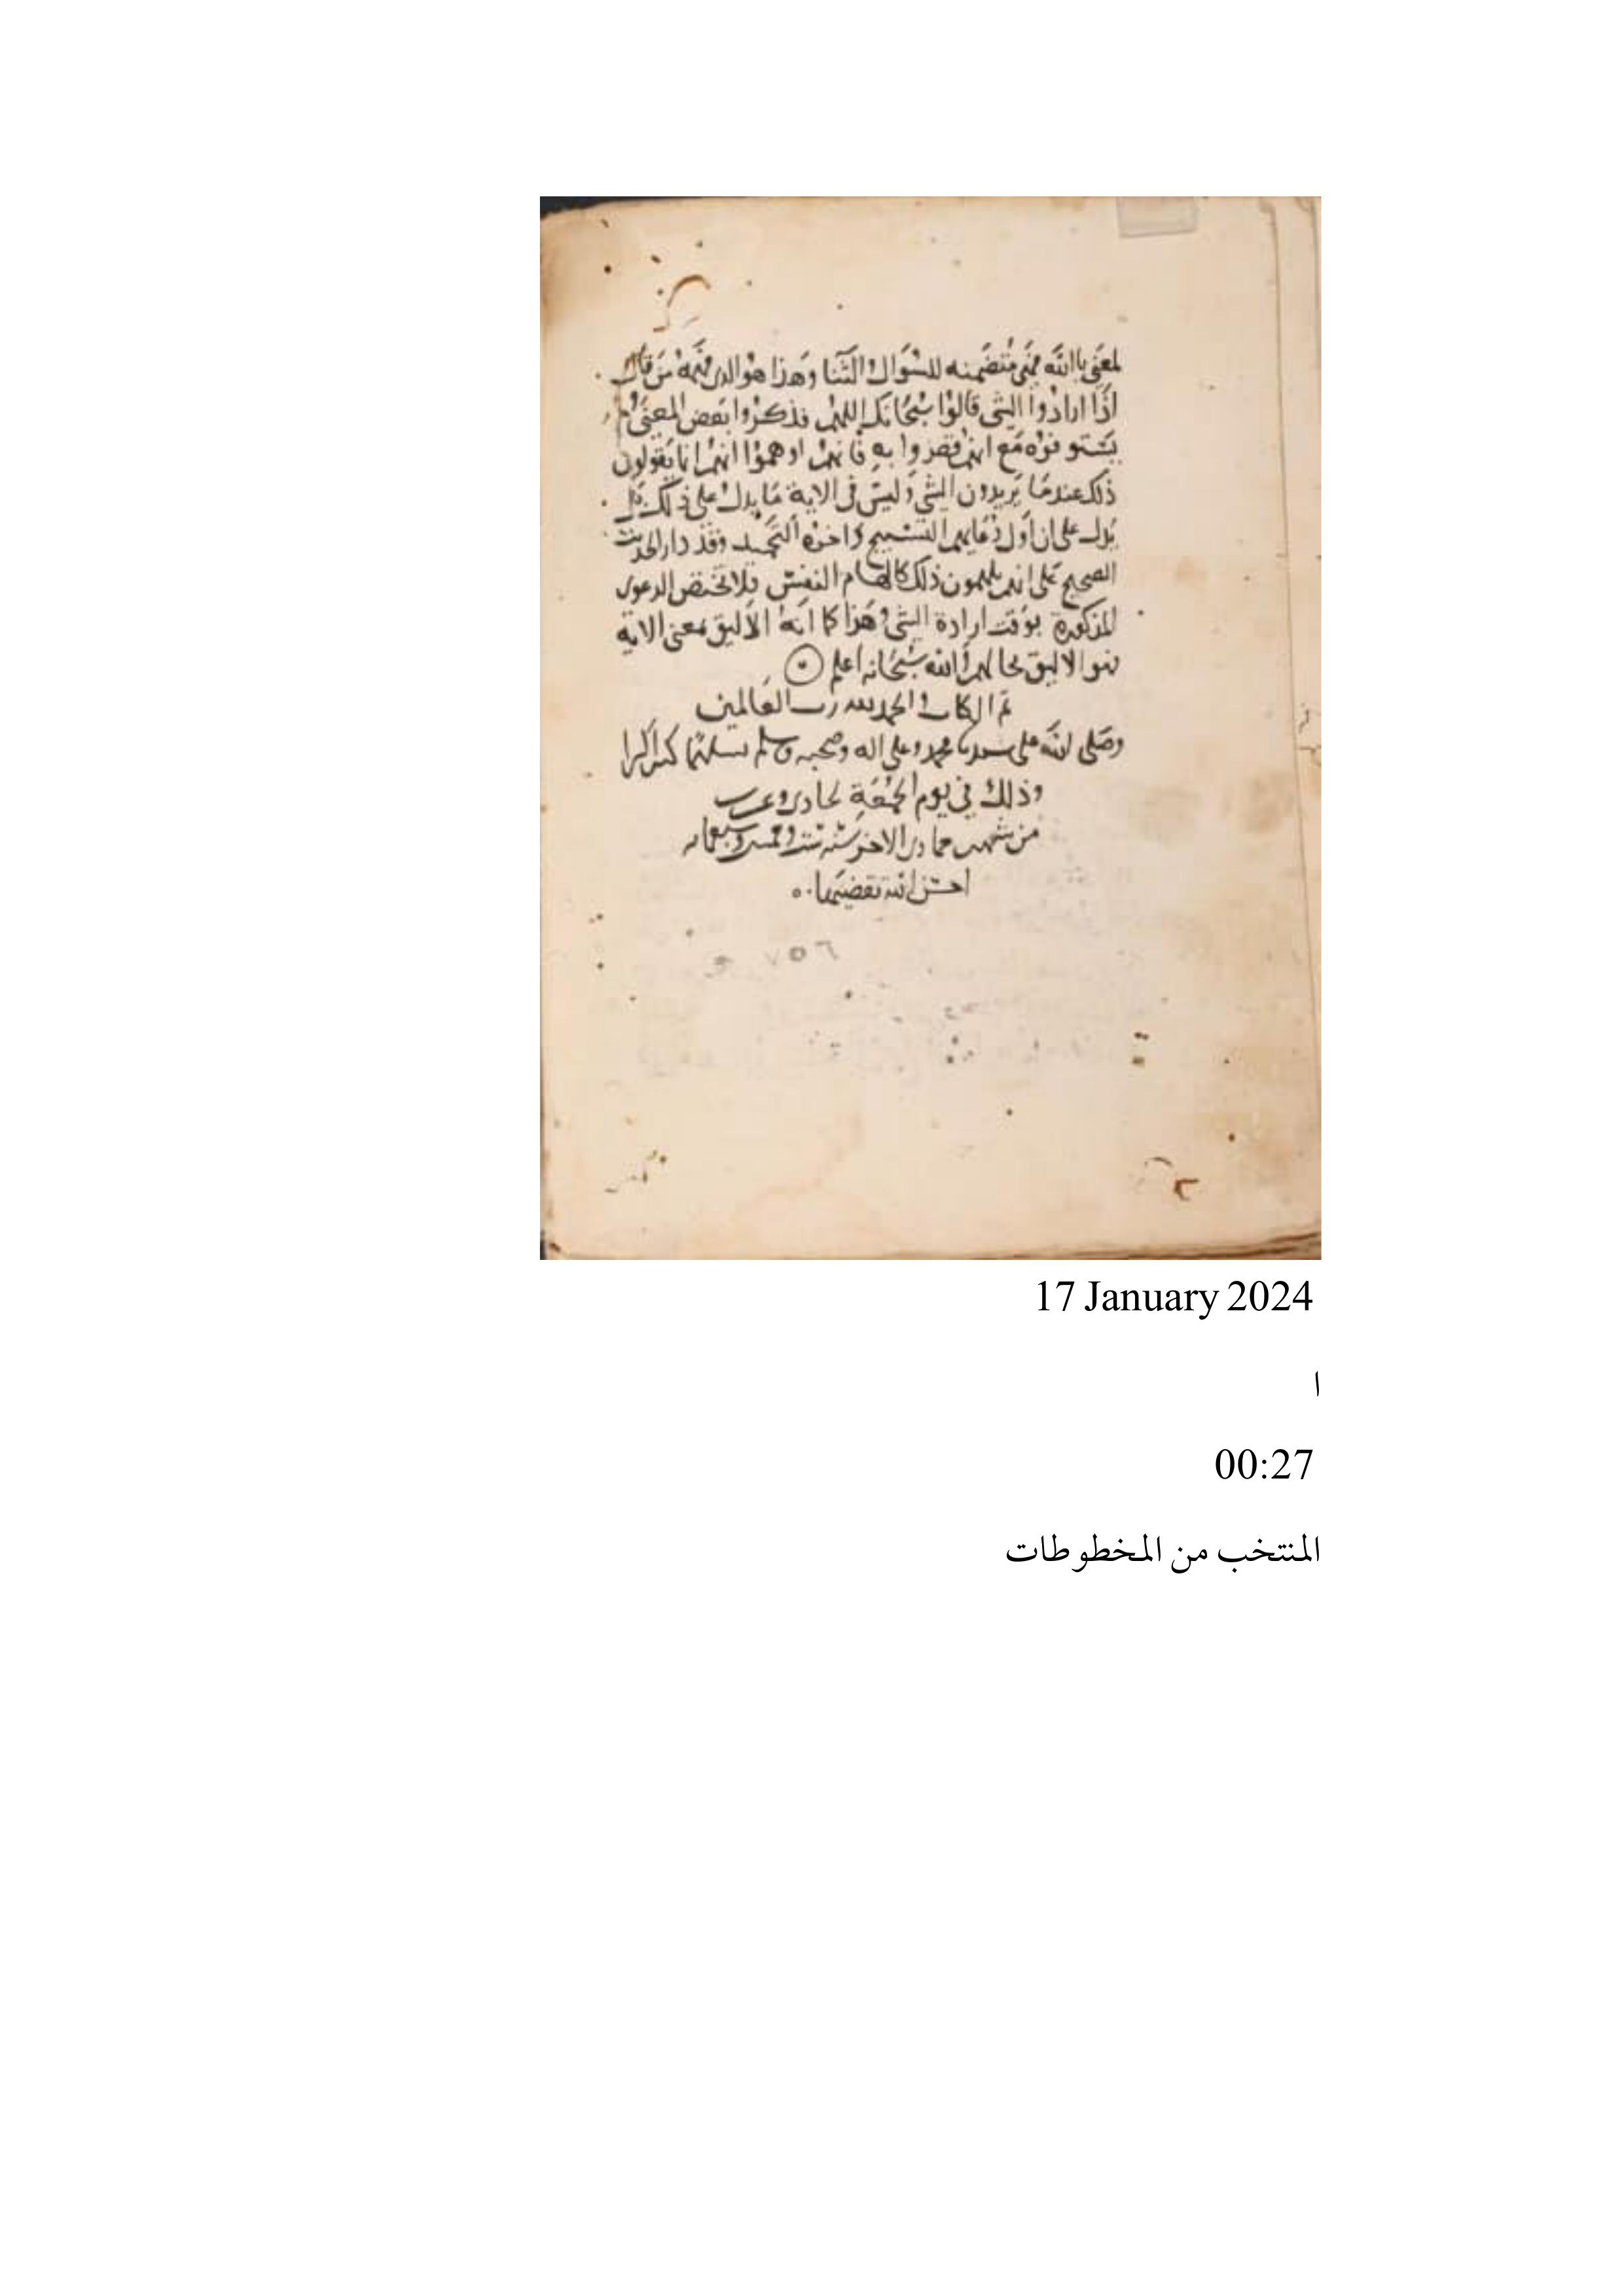 لمعنى يا الله فهي متضمنه للسؤال والثنا وهذا هو الذي فهمه من قال
اذا ارادوا الشي قالوا سبحانك اللهم فذكروا بعض المعنى ولم
يستوفوه مع انهم قصروا به فانهم اوهموا انهم انما يقولون
ذلك عندما يريدون الشي وليس في الاية ما يدل على ذلك بل
يدل على ان اول دعايهم التسبيح واخره التحميد وقد دل الحديث
الصحيح على انهم يلهمون ذلك كالهام النفس فلا تختص الدعوى
المذكورة بوقت ارادة الشي وهذا كما انه الاليق بمعنى الاية
فهو الاليق بحالهم والله سبحانه اعلم
تم الكتاب والحمد لله رب العالمين
وصلى الله على سيدنا محمد وعلى اله وصحبه وسلم تسليما كثيرا
وذلك في يوم الجمعة لحادي وعشرين
من شهر جمادى الاخر سنه ست وخمسين وسبعمائه
احسن الله تقضيها
٧٥٦
17 January 2024
ا
00:27
المنتخب من المخطوطات